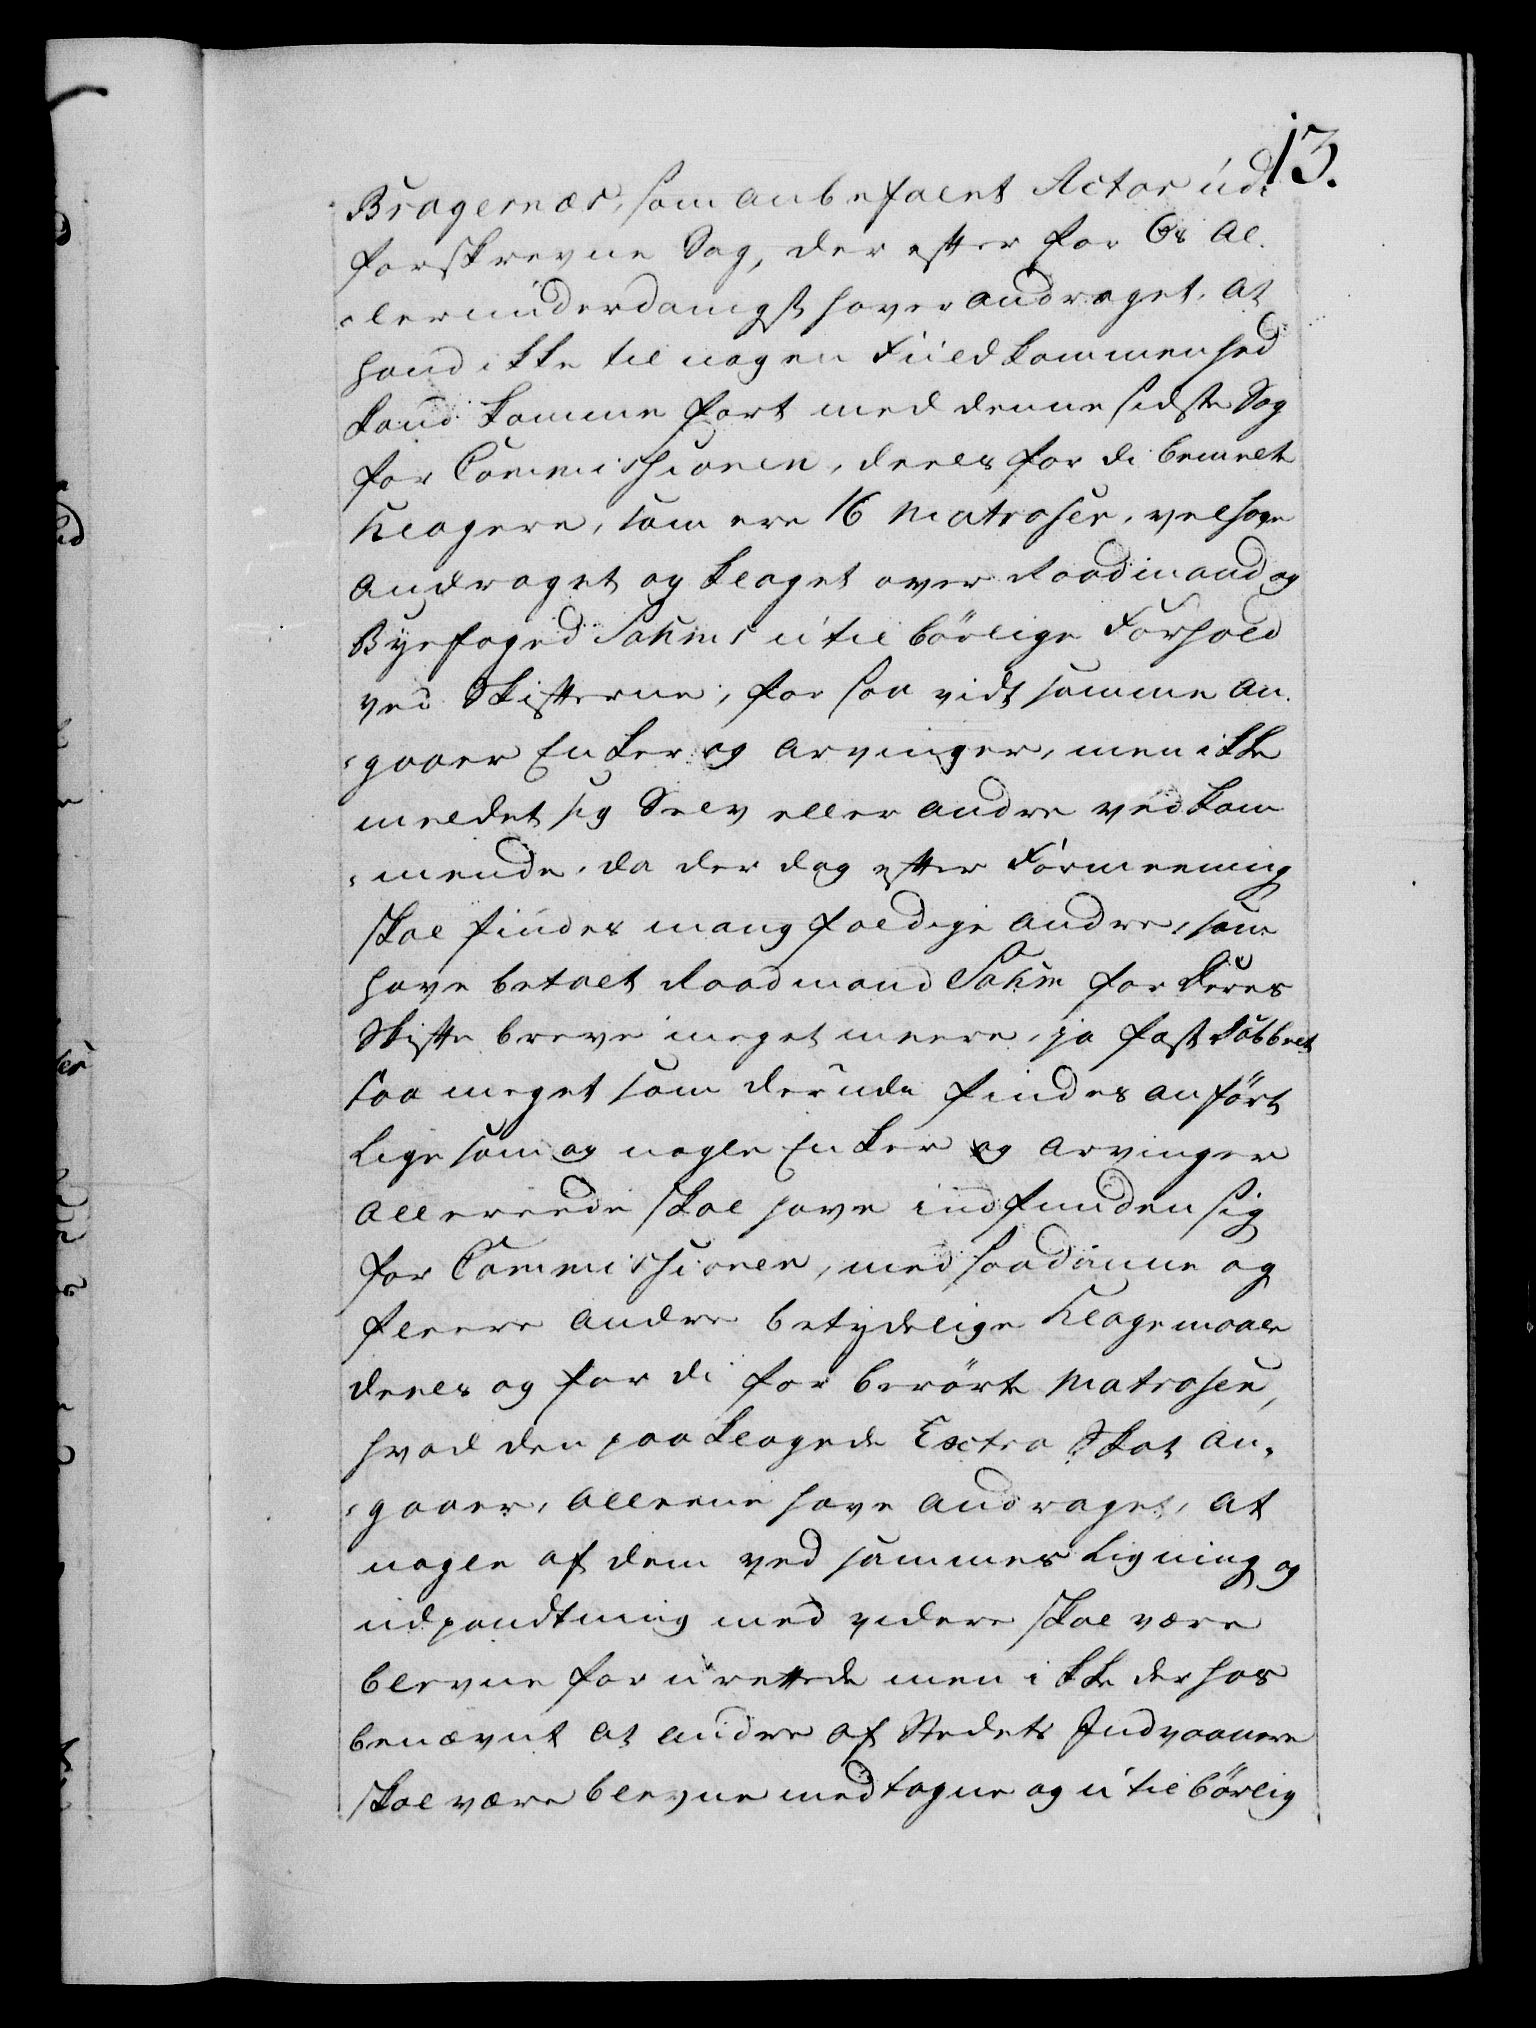 13.
Bragernæs, som anbefalet Actor udi
forskrevne Sag, der efter for Os Al-
-lerunderdanigst haver andraget, at
hand ikke til nogen Fuldkommenhed
kand komme fort med denne sidste Sag
for Commissionen, deels fordi bemelte
Klagere, som ere 16 Matroser, vel have
andraget og klaget over Raadmand og
Byefoged Sahms utilbörlige Forhold
ved Skifterne, for saa vidt samme an-
-gaaer Enker og Arvinger, men ikke
meldet sig Selv eller andre vedkom
-mende, da der dog efter Formeening
skal findes mangfoldige andre, som
have betalt Raadmand Sahm for deres
Skifte breve meget meere, ja fast dobbelt
saa meget som derude findes anfört
ligesom og nogle Enker og Arvinger
allereede skal have indfunden sig
for Commissionen, med saadanne og
fleere andre betydelige Klagemaale
deels og fordi forberörte Matroser,
hvad den paaklagede Extra Skat an-
-gaaer, alleene have andraget, at
nogle af dem ved sammes Ligning og
udpandtning med videre skal være
blevne forurettede men ikke derhos
benævnt at andre af Stedets Indvaanere
skal være blevne medtagne og utilbörlig